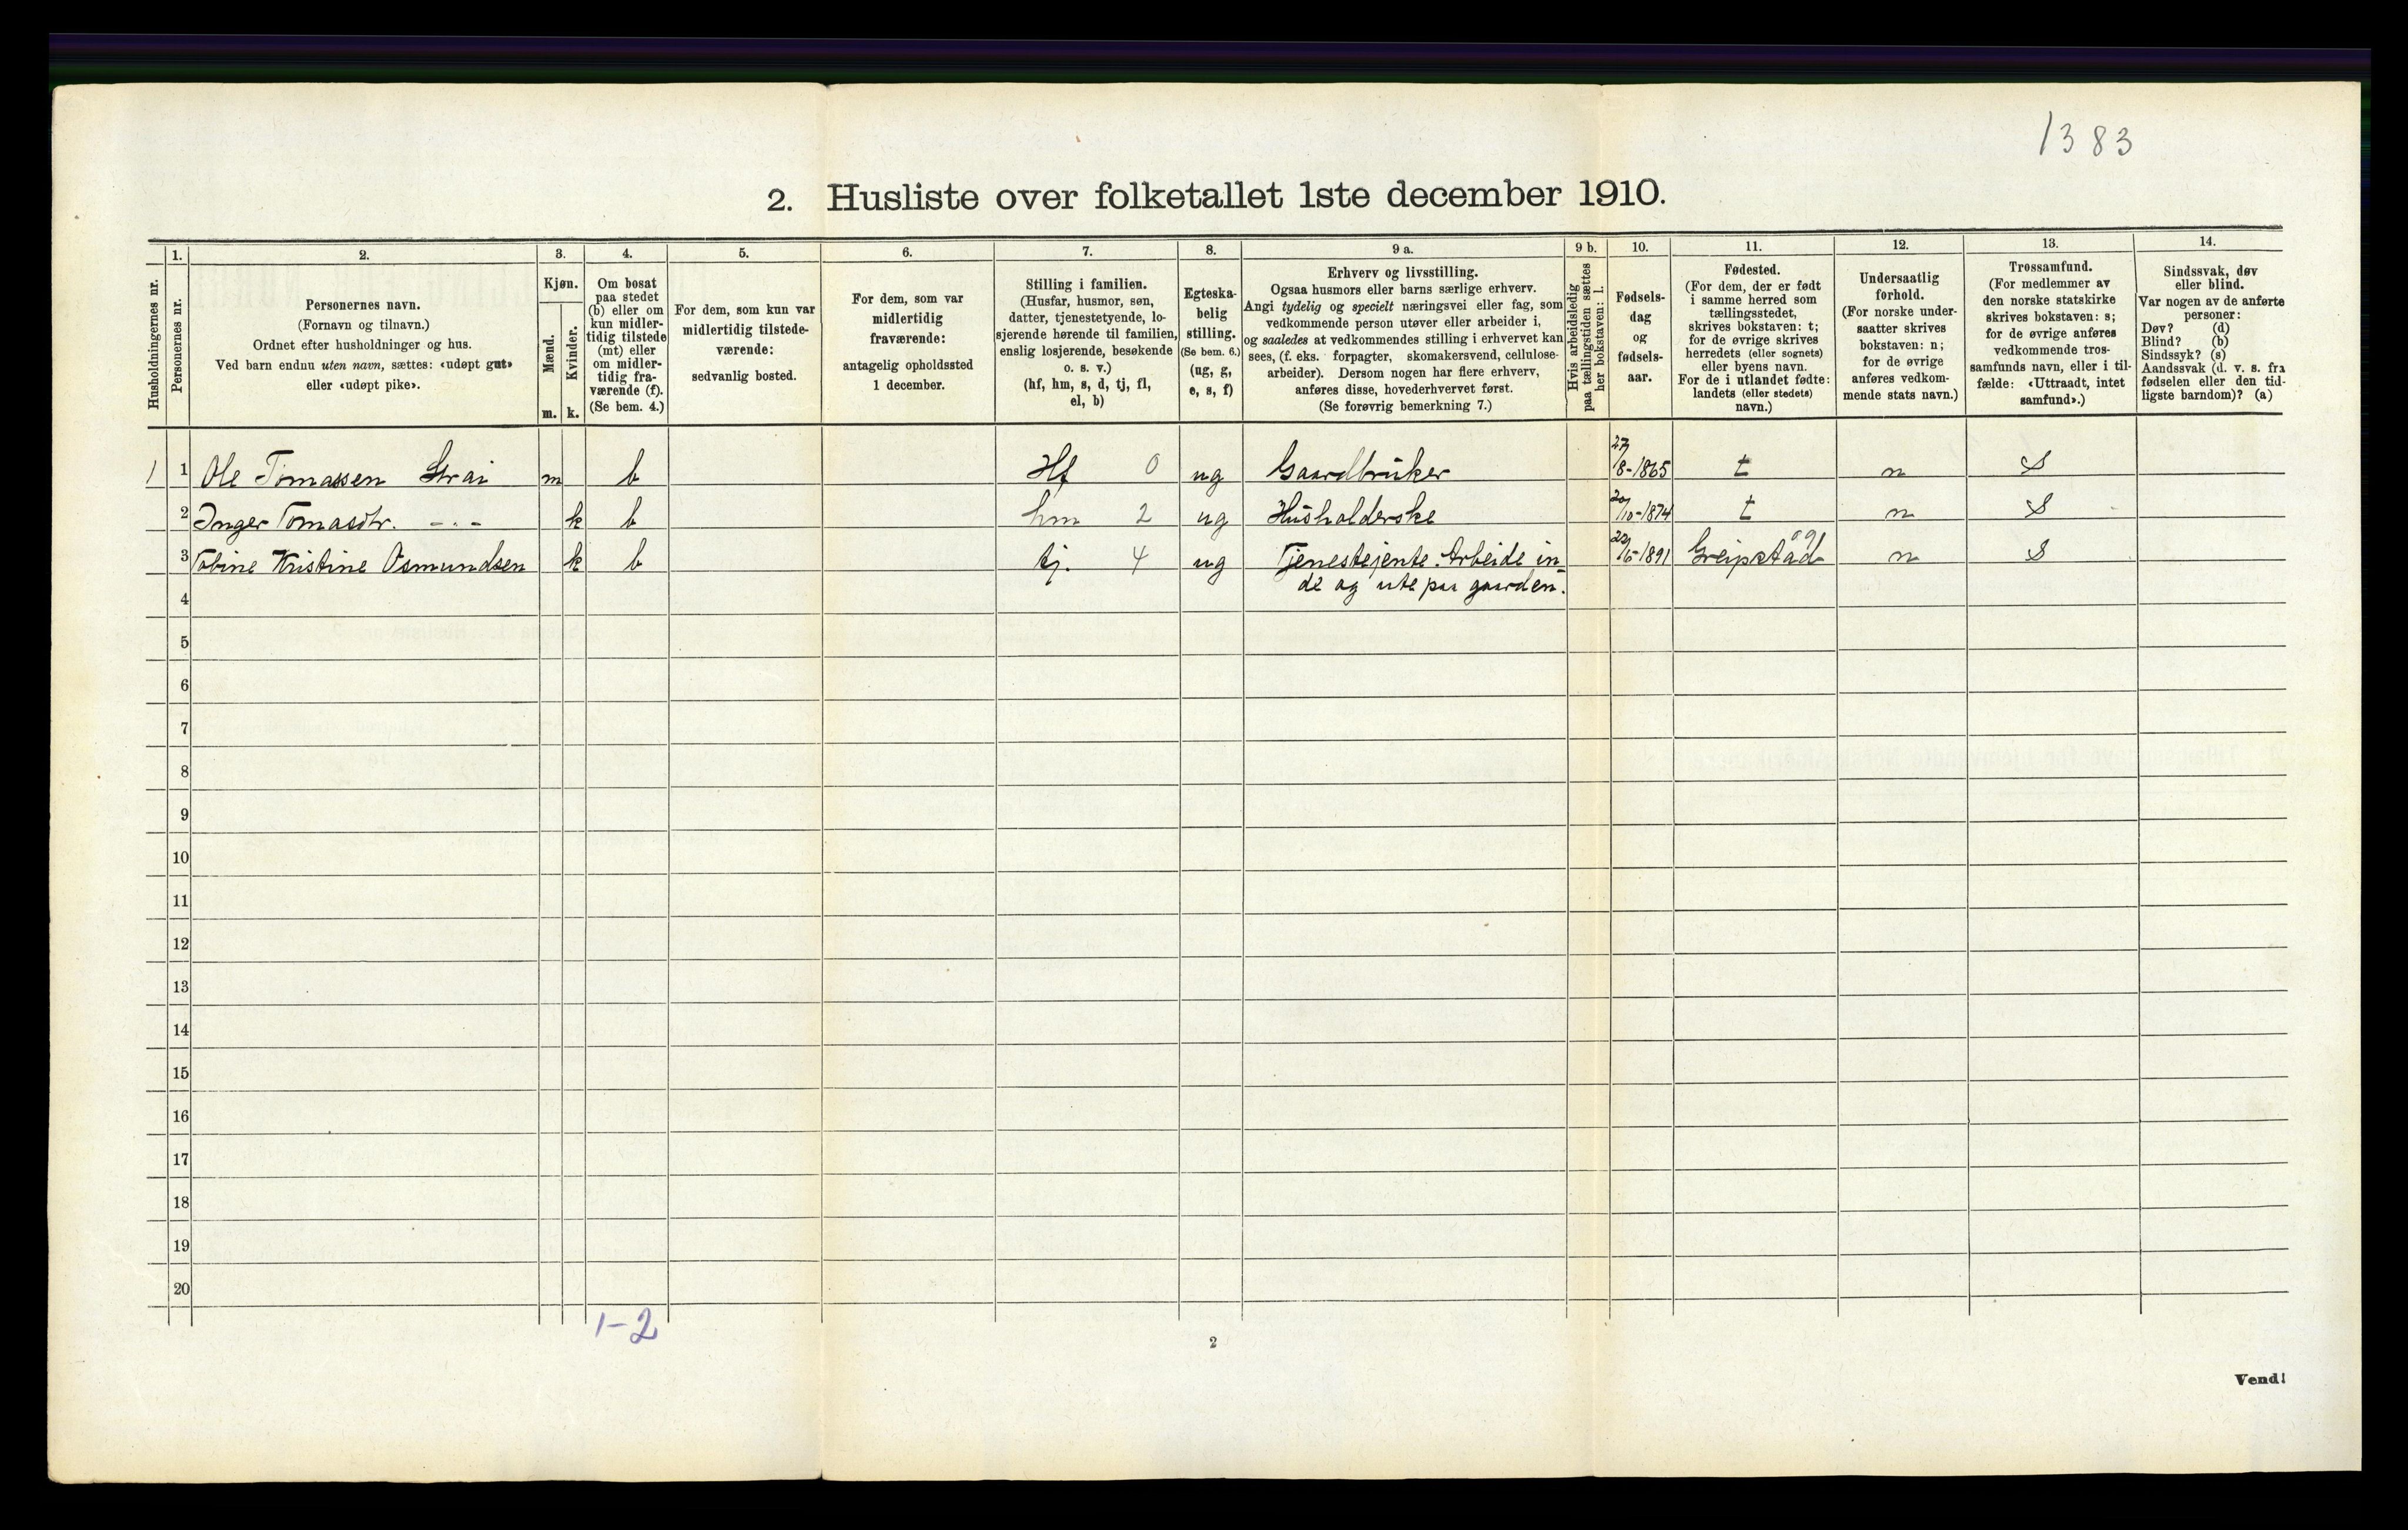 1383
2. Husliste over folketallet 1ste december 1910.
Husholdningernes nr.
1.
Personernes nr.
2.
Personernes navn.
(Fornavn og tilnavn.)
Ordnet efter husholdninger og hus.
Ved barn endnu uten navn, sættes: «udøpt gut»
eller «udøpt pike».
3.
Kjøn.
Mænd.
m.
Kvinder.
k.
4.
Om bosat
paa stedet
(b) eller om
kun midler-
tidig tilstede
(mt) eller
om midler-
tidig fra-
værende (f).
(Se bem. 4.)
5.
For dem, som kun var
midlertidig tilstede-
værende:
sedvanlig bosted.
6.
For dem, som var
midlertidig
fraværende:
antagelig opholdssted
1 december.
7.
Stilling i familien.
(Husfar, husmor, søn,
datter, tjenestetyende, lo-
sjerende hørende til familien,
enslig losjerende, besøkende
o. s. v.)
(hf, hm, s, d, tj, fl,
el, b)
8.
Egteska-
belig
stilling.
(Se bem. 6.)
(ug, g,
e, s, f)
9 a.
Erhverv og livsstilling.
Ogsaa husmors eller barns særlige erhverv.
Angi tydelig og specielt næringsvei eller fag, som
vedkommende person utøver eller arbeider i,
og saaledes at vedkommendes stilling i erhvervet kan
sees, (f. eks. forpagter, skomakersvend, cellulose-
arbeider). Dersom nogen har flere erhverv,
anføres disse, hovederhvervet først.
(Se forøvrig bemerkning 7.)
9 b.
Hvis arbeidsledig
paa tællingstiden sættes
her bokstaven: l.
10.
Fødsels-
dag
og
fødsels-
aar.
11.
Fødested.
(For dem, der er født
i samme herred som
tællingsstedet,
skrives bokstaven: t;
for de øvrige skrives
herredets (eller sognets)
eller byens navn.
For de i utlandet fødte:
landets (eller stedets)
navn.)
12.
Undersaatlig
forhold.
(For norske under-
saatter skrives
bokstaven: n;
for de øvrige
anføres vedkom-
mende stats navn.)
13.
Trossamfund.
(For medlemmer av
den norske statskirke
skrives bokstaven: s;
for de øvrige anføres
vedkommende tros-
samfunds navn, eller i til-
fælde: «Uttraadt, intet
samfund».)
14.
Sindssvak, døv
eller blind.
Var nogen av de anførte
personer:
Døv? (d)
Blind? (b)
Sindssyk? (s)
Aandssvak (d. v. s. fra
fødselen eller den tid-
ligste barndom)? (a)
1 1 Ole Tomassen Strai m b Hf 0 ug Gaardbruker 27/8-1865 t n S
2 Inger Tomasdtr. -"- k b hm 2 ug Husholderske 20/10-1874 t n S
3 Tobine Kristine Osmundsen k b tj. 4 ug Tjenestejente. Arbeide in- 1891 Greipstad n S
4 de og ute paa gaarden.
5
6
7
8
9
10
11
12
13
14
15
16
17
18
19
20
1-2
2
Vend!